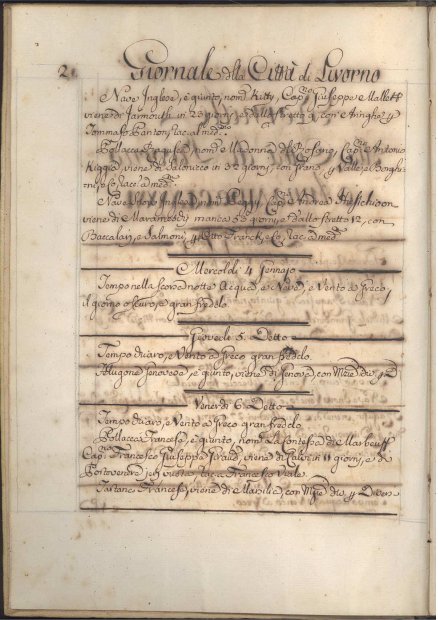 2. Giornale della Città di Livorno
Nave Inglese, è giunto, nom.ta Kitty, Cap. Giuseppe Mallett
viene di Jarmouth in 23 giorni, e dallo stretto 9, con Aringhe p.
Tommaso Panton, rac. al med.mo
Pollacca Ragusea nom.ta Madonna del Rosario, Cap. Antonio
viene di Salonicco in 32 giorni, con grano, p.
rac. a med.
Nave nom.ta Peggy, Cap. Andrea
viene di manca 50 giorni, e dallo stretto 12, con
Baccalari, e Salmoni, p. Otto Franck, e C. rac. a med.
Mercoledì 4 Gennajo
Tempo nella scorsa notte Acqua, e Neve, e Vento a Greco,
il giorno oscuro, e gran freddo
Giovedì 5. Detto
Tempo chiaro, e Vento a Greco gran freddo.
Genovese, è giunto, viene di Genova, con p. D
Venerdì 6. Detto
Tempo chiaro, e Vento a Greco gran freddo.
Pollacca Francese, è giunto, nom.ta La Contessa di Marbeuff
Cap. Francesco Giuseppe viene di in 11 giorni, e di
Portovenere
Tartana Francese, viene di Marsilia, con p. Diver